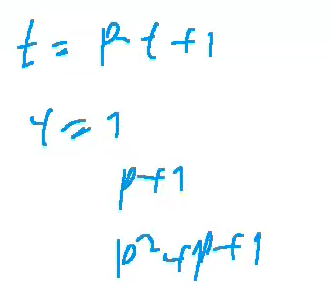 t = pt + 1
y = 1
p + 1
p² + p + 1